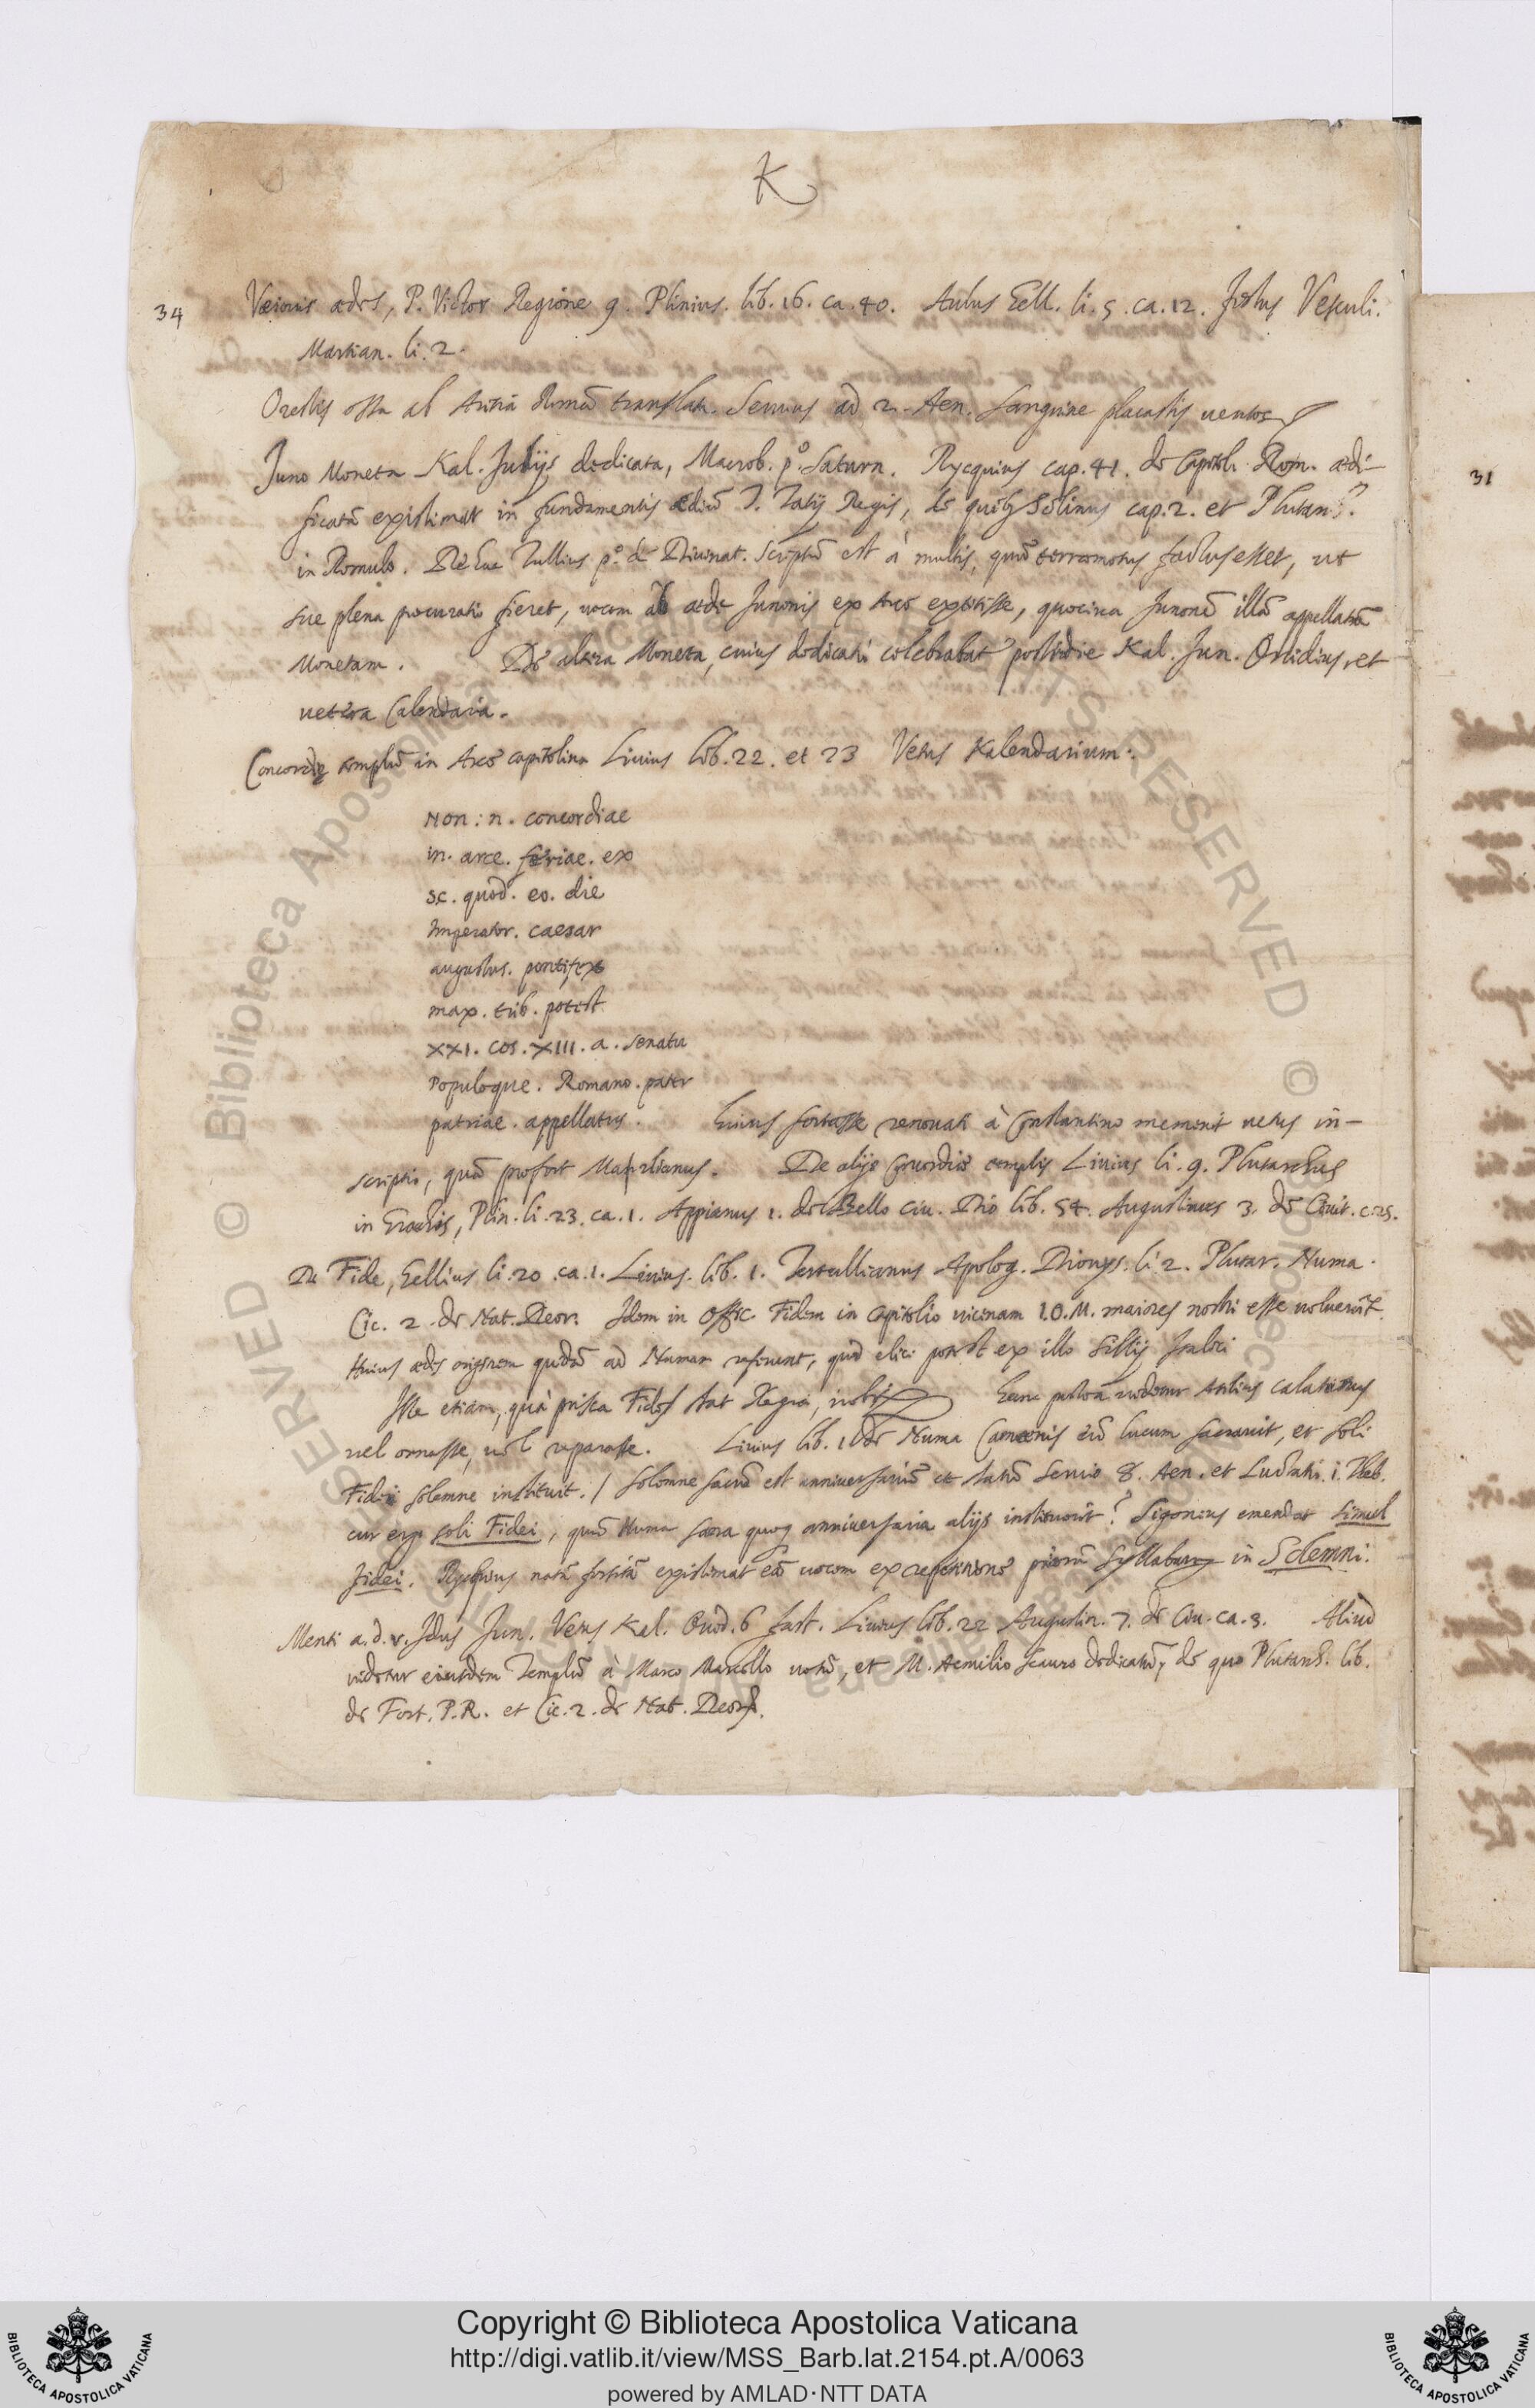 K
34 Veiouis ædes, P. Victor Regione 9. Plinius. lib. 16. ca. 40. Aulus Gell. li. 5. ca. 12. festus Vesculi.
Martian. li. 2.
Orestis ossa ab Aritia Romã translata. Seruius ad 2. Aen. Sanguine placastis uentos
Juno Moneta Kal. Junijs dedicata, Macrob. pº. Saturn. Rycquius cap. 41. de Capitol. Rom. ædi-
ficatã existimat in fundamentis ædiũ T. Tatij Regis, de quibꝫ Solinus cap. 2. et Plutar.
in Romulo. Tullius pº. de Diuinat. Scriptũ est à multis, quũ terremotus factus esset, ut
sue plena procuratio fieret, uocem ab æde Junonis ex Arce extitisse, quocirca Junonẽ illã appellatã
Monetam. De altera Moneta, cuius dedicatio celebrabat postridie Kal. Jun. Ouidius, et
uetera Calendaria.
Concordię templũ in Arce capitolina Liuius lib. 22. et 23 Vetus Kalendarium.
Non: n. concordiae
in. arce. feriae. ex
s.c. quod. eo. die
Imperator. caesar
augustus. pontifex
max. trib. potest
XXI. cos. XIII. a. senatu
Populoque. Romano. pater
patriae. appellatus. Huius fortasse renouati à Constantino meminit uetus in-
scriptio, quã profert Marlianus. De alijs Concordiæ templis Liuius li. 9. Plutarchus
in Gracchis, Plin. li. 23. ca. 1. Appianus 1. de Bello Ciu. Dio lib. 54. Augustinus 3. de Ciuit. c. 25.
De Fide, Gellius li. 20. ca. 1. Liuius. lib. 1. Tertullianus Apolog. Dionys. li. 2. Plutar. Numa.
Cic. 2. de Nat. Deor. Idem in Offic. Fidem in Capitolio uicinam I.O.M. maiores nostri esse uoluerũt.
Huius ædis originem quidã ad Numam referunt, quod elici potest ex illo Sillij Italici
Isse etiam, quà prisca Fides stat Regia, nobis Hanc postea uidetur Atilius Calatinus
uel ornasse, uel reparasse. Liuius lib. 1 de Numa Camœnis eũ lucum sacrauit, et soli
Fidei solemne instituit. / Solemne sacrũ est anniuersariũ et statũ Seruio 8. Aen. et Luctatio. i. Theb.
cur ergo soli Fidei, quũ Numa sacra quoqꝫ anniuersaria alijs instituerit? Sigonius emendat simul
fidei. Rycquius natã fortitã existimat eã uocem ex repetitione priorũ Syllabarũ in Solemni.
Menti a. d. v. Idus Jun. Vetus Kal. Ouid. 6 fast. Liuius lib. 22 Augustin. 7. de Ciu. ca. 3. Aliud
uidetur eiusdem Templũ à Marco Marcello uotũ, et M. Aemilio Scauro dedicatũ, de quo Plutarch. lib.
de Fort. P. R. et Cic. 2. de Nat. Deor.
31
Copyright © Biblioteca Apostolica Vaticana
http://digi.vatlib.it/view/MSS_Barb.lat.2154.pt.A/0063
powered by AMLAD·NTT DATA
BIBLIOTECA APOSTOLICA VATICANA
BIBLIOTECA APOSTOLICA VATICANA